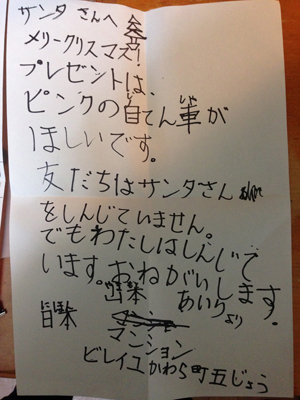 サンタさんへ
メリークリスマス!
プレゼントは、
ピンクの自てん車が
ほしいです。
友だちはサンタさん
をしんじていません。
でもわたしはしんじて
います。おねがいします。
あいりより
日本
マンション
ビレイユかわら町五じょう